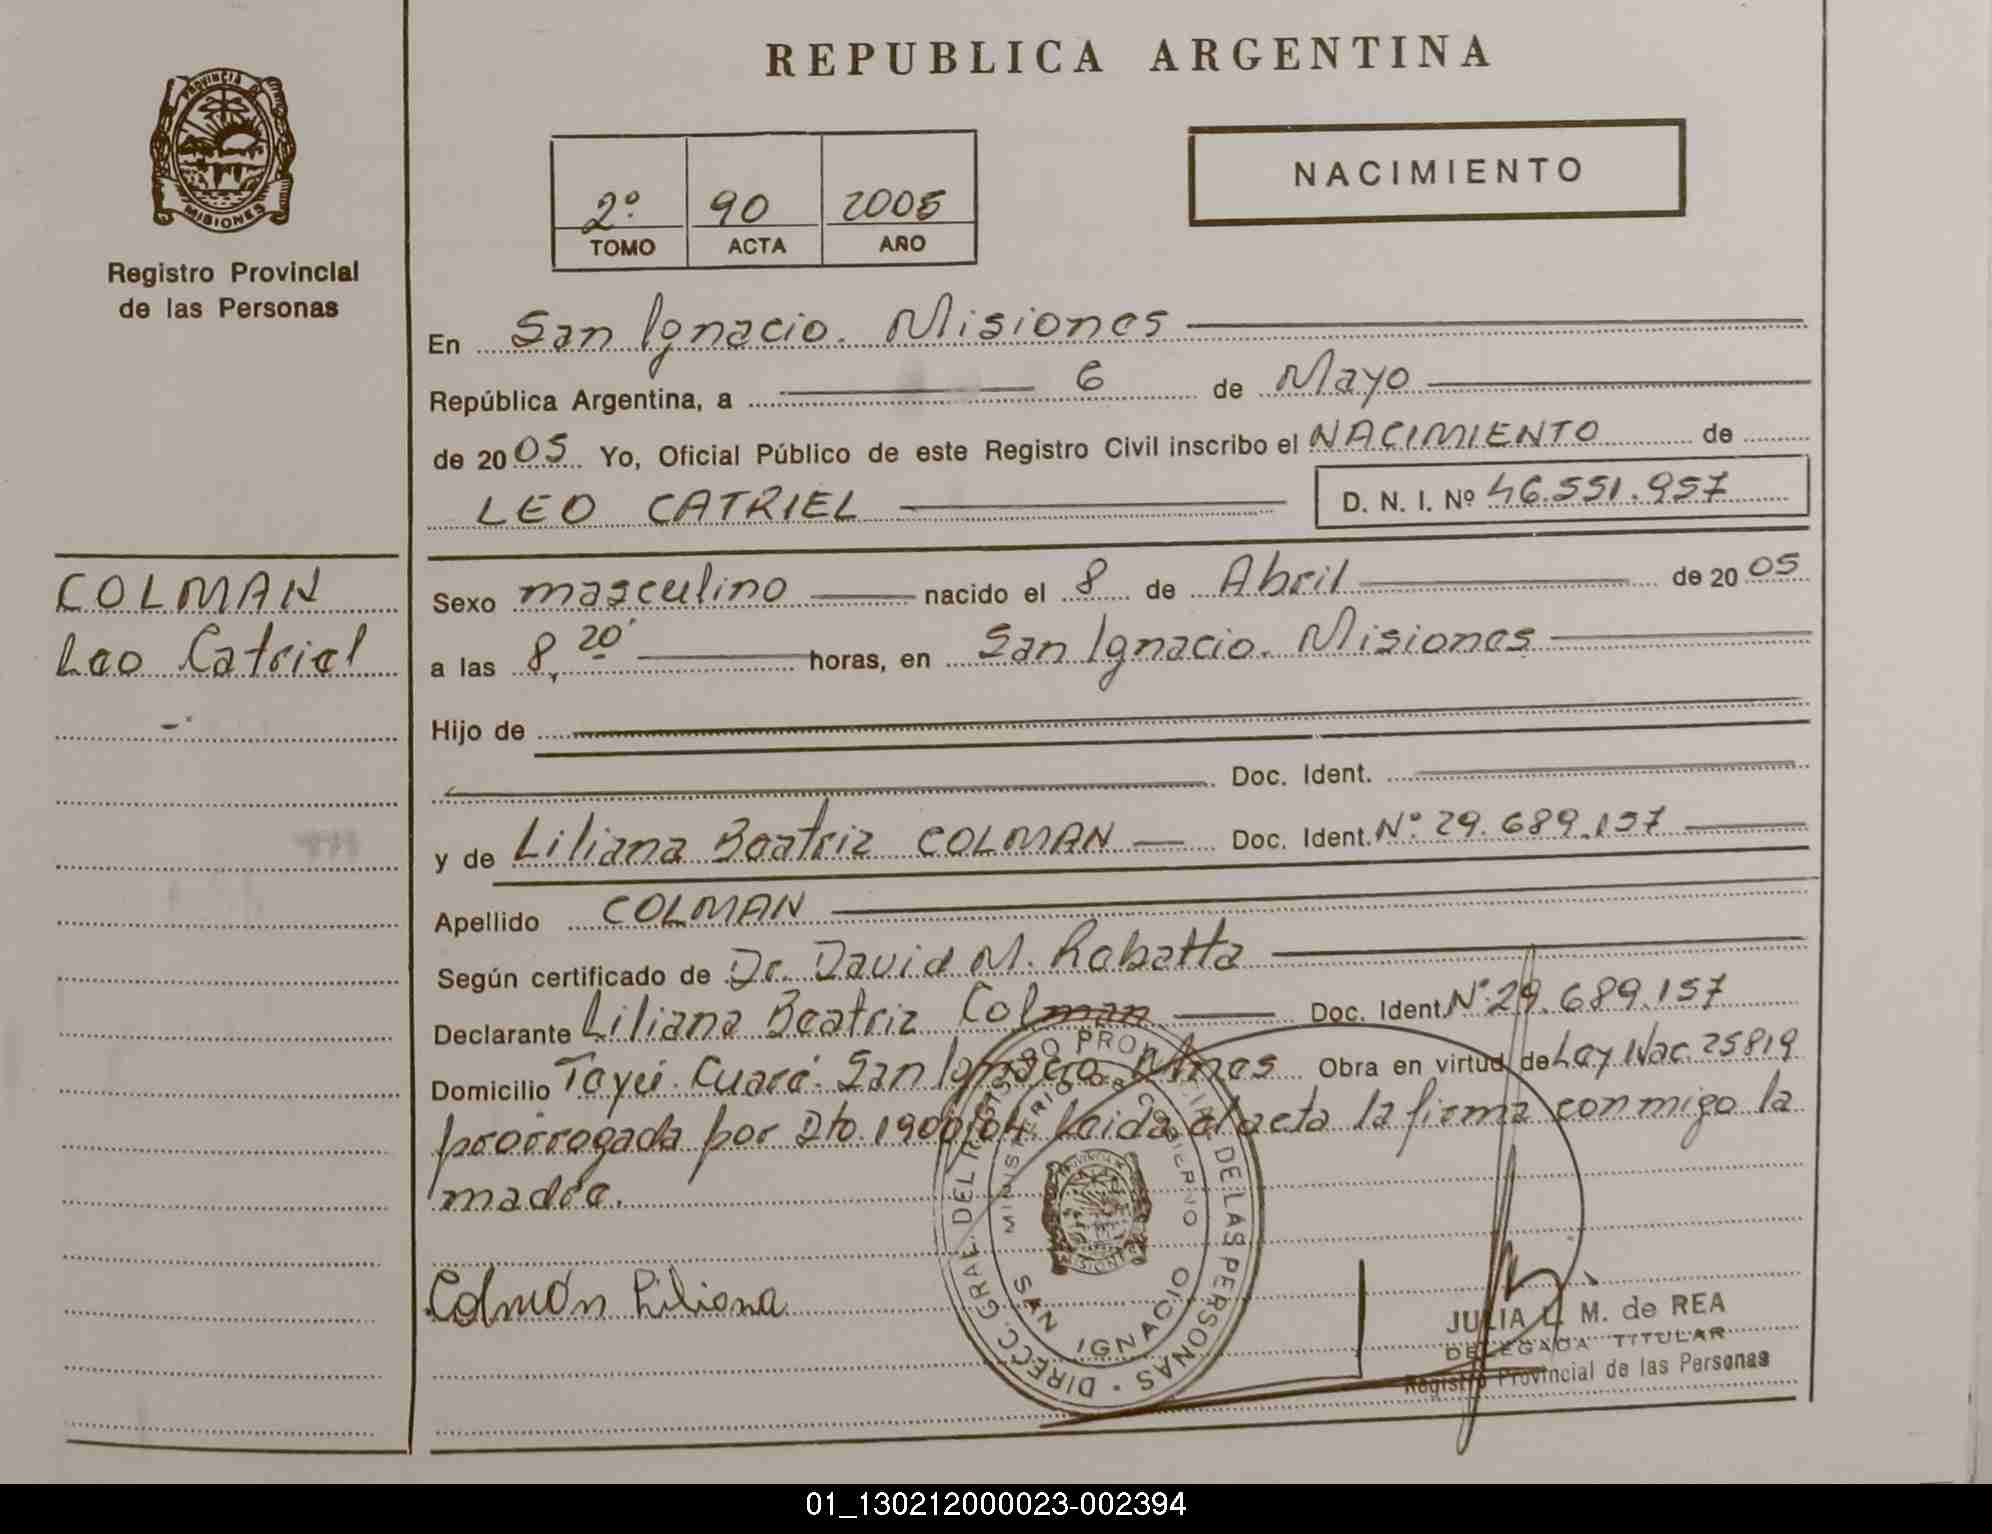 REPUBLICA ARGENTINA
PROVINCIA DE
MISIONES
Registro Provincial
de las Personas
NACIMIENTO
2º 90 2005
TOMO ACTA AÑO
En San Ignacio. Misiones
República Argentina, a 6 de Mayo
de 2005 Yo, Oficial Público de este Registro Civil inscribo el NACIMIENTO de
LEO CATRIEL D. N. I. Nº 46.551.957
COLMAN
Leo Catriel
Sexo masculino nacido el 8 de Abril de 2005
a las 8,20' horas, en San Ignacio. Misiones
Hijo de
Doc. Ident.
y de Liliana Beatriz COLMAN Doc. Ident. Nº 29.689.157
Apellido COLMAN
Según certificado de Dr. David M. Rabatta
Declarante Liliana Beatriz Colman Doc. Ident. Nº 29.689.157
Domicilio Teyú Cuaré. San Ignacio. Mnes Obra en virtud de Ley Nac. 25819
prorrogada por Dto. 1900/04. Leida el acta la firma conmigo la
madre.
Colmán Liliana
DIRECC. GRAL. DEL REGISTRO PROVINCIAL DE LAS PERSONAS
MINISTERIO DE GOBIERNO
SAN IGNACIO
JULIA L. M. de REA
DELEGADA TITULAR
Registro Provincial de las Personas
01_130212000023-002394